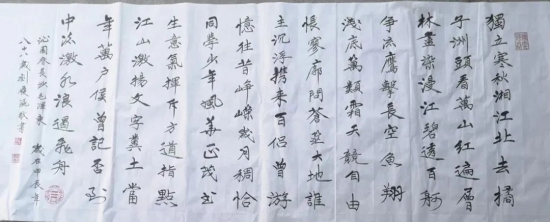 獨立寒秋湘江北去橘
子洲頭看萬山紅遍層
林盡染漫江碧透百舸
爭流鷹擊長空魚翔
淺底萬類霜天競自由
悵寥廓問蒼茫大地誰
主沉浮携来百侣曾游
憶往昔崢嶸歲月稠恰
同學少年風華正茂書
生意氣揮斥方遒指點
江山激揚文字糞土當
年萬户侯曾記否到
中流激水浪遏飛舟
沁園春長沙毛澤東 歲在甲辰年
八十六歲 敬書